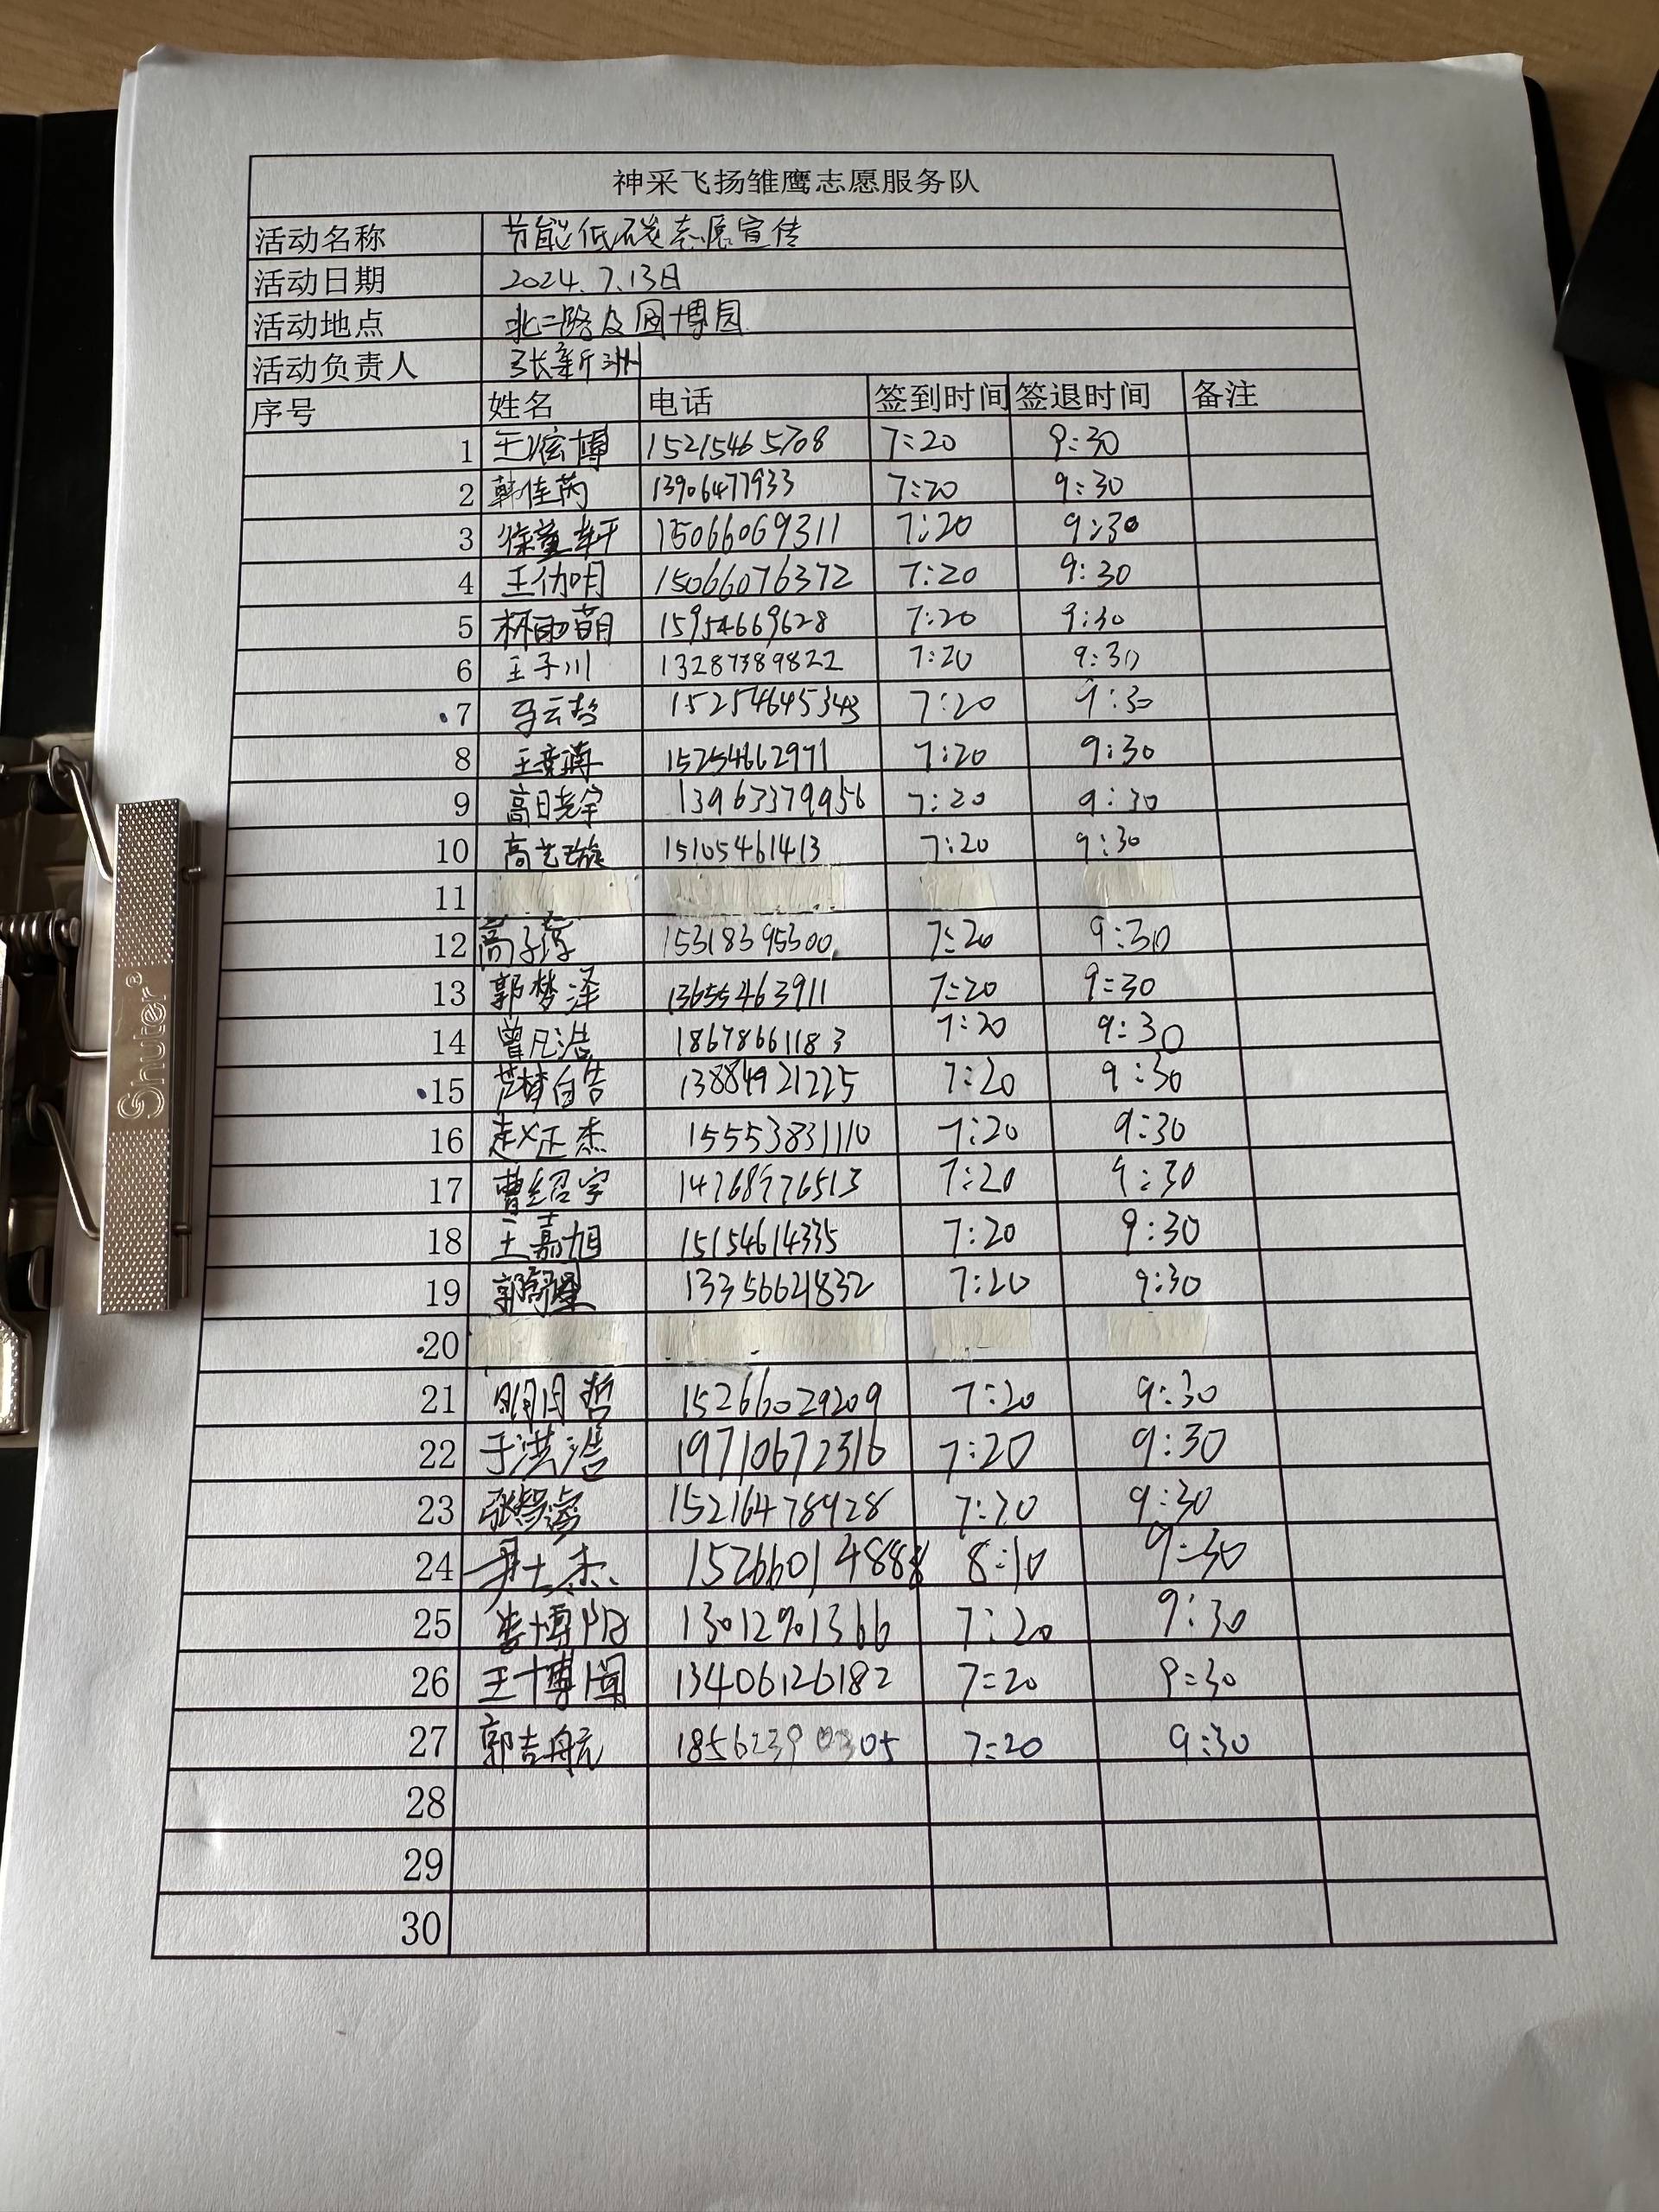 神采飞扬雏鹰志愿服务队
活动名称 节能低碳志愿宣传
活动日期 2024.7.13日
活动地点 北二路及园博园
活动负责人 张新洲
序号 姓名 电话 签到时间 签退时间 备注
1 王泓博 15215465708 7:20 9:30
2 韩佳芮 13906477933 7:20 9:30
3 徐童轩 15066069311 7:20 9:30
4 王仂明 15066076372 7:20 9:30
5 林雨萌 15954669628 7:20 9:30
6 王子川 13287389822 7:20 9:30
7 马云哲 15254645343 7:20 9:30
8 15254662971 7:20 9:30
9 高晓宇 13963379956 7:20 9:30
10 高艺璇 15105461413 7:20 9:30
11
12 高子淳 15318395300 7:20 9:30
13 郭梦泽 13655463911 7:20 9:30
14 曾凡浩 18678661183 7:20 9:30
15 13884921225 7:20 9:30
16 赵正杰 15553831110 7:20 9:30
17 曹绍宇 14768976513 7:20 9:30
18 王嘉旭 15154614335 7:20 9:30
19 13356621832 7:20 9:30
20
21 明月哲 15266029209 7:20 9:30
22 于洪浩 19710672316 7:20 9:30
23 15216478928 7:20 9:30
24 尹士杰 15266014888 8:10 9:30
25 李博 13012901366 7:20 9:30
26 王博闻 13406126182 7:20 9:30
27 郭吉航 7:20 9:30
28
29
30
Shuter®